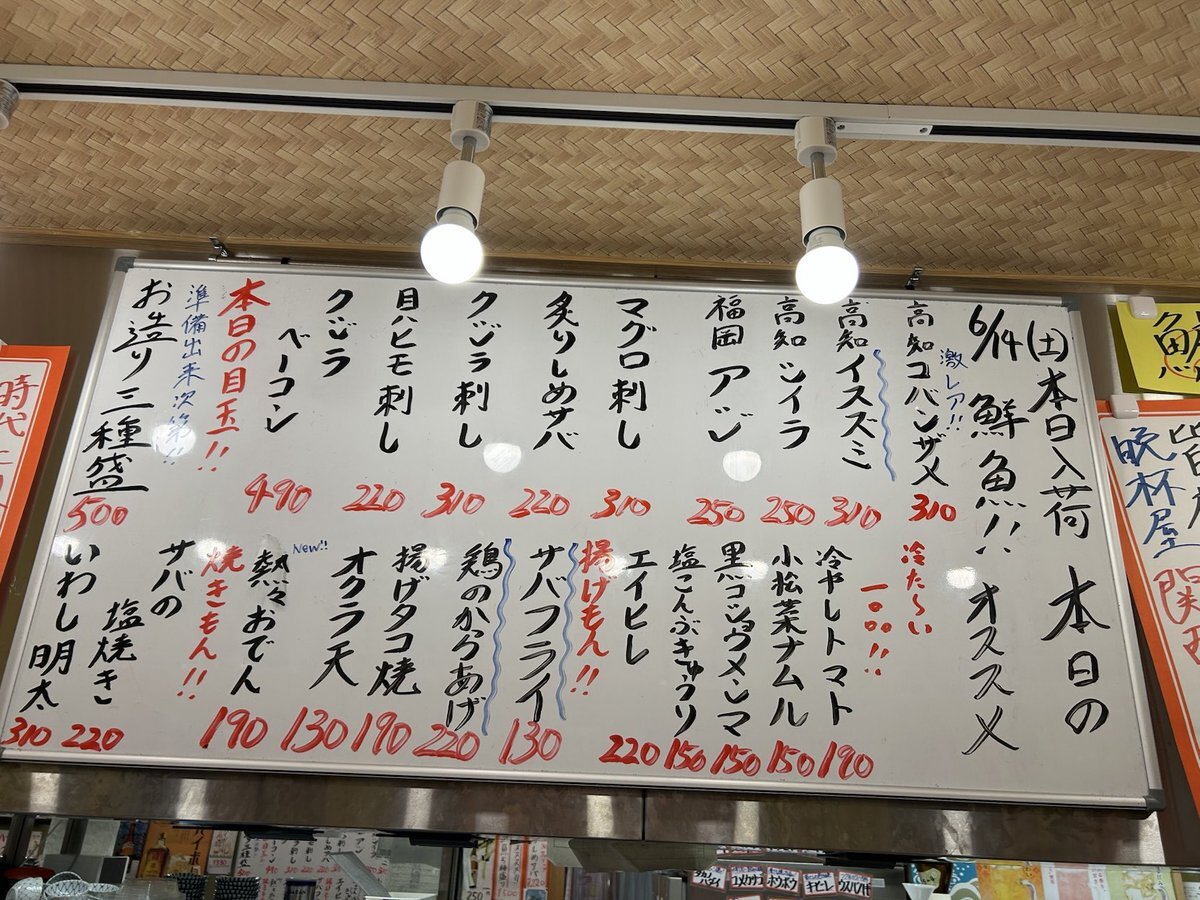 6/14(土)本日入荷
鮮魚!!
本日の
オススメ
激レア!!
高知コバンザメ 310
高知イスズミ 310
高知シイラ 250
福岡アジ 250
マグロ刺し 310
炙りしめサバ 220
クジラ刺し 310
貝ヒモ刺し 220
クジラ
ベーコン 490
本日の目玉!!
準備出来次第!!
お造り三種盛 500
冷た〜い
一〇〇!!
冷やしトマト 190
小松菜ナムル 150
黒コショウメンマ 150
塩こんぶきゅうり 150
エイヒレ 220
揚げもん!!
サバフライ 130
鶏のからあげ 220
揚げタコ焼 190
オクラ天 130
New!!
熱々おでん 190
焼きもん!!
サバの
塩焼き 220
いわし明太 310
晩杯屋
時代
ユメカサゴ
ホウボウ
キビレ